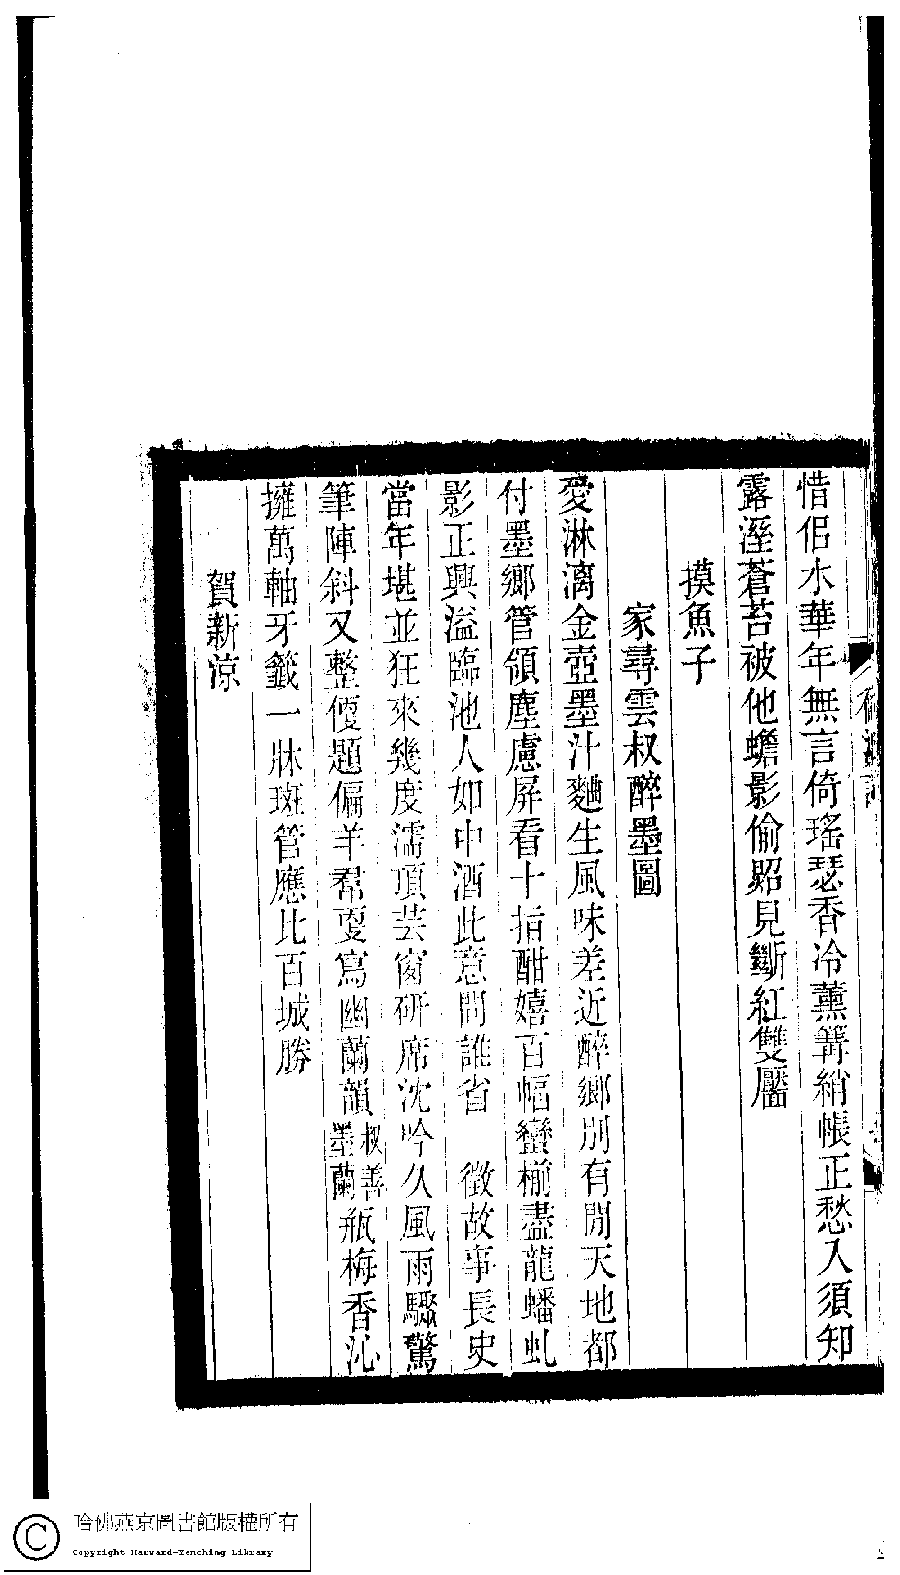 惜侶水華年無言倚瑤瑟香冷薰篝綃帳正愁入須知
露溼蒼苔被他蟾影偷照見斷紅雙靨
摸魚子
家尋雲叔醉墨圖
愛淋漓金壺墨汁麯生風味差近醉鄉別有閒天地都
付墨鄉管領塵慮屏看十指酣嬉百幅蠻榔盡龍蟠虬
影正興溢臨池人如中酒此意問誰省　徵故事長史
當年堪並狂來幾度濡頂芸窗研席沈吟久風雨驟驚
筆陣斜又整傻題偏羊羣戛寫幽蘭韻叔善墨蘭瓶梅香沁
擁萬軸牙籤一牀斑管應比百城勝
賀新涼
哈佛燕京圖書館版權所有
Copyright Harvard-Yenching Library